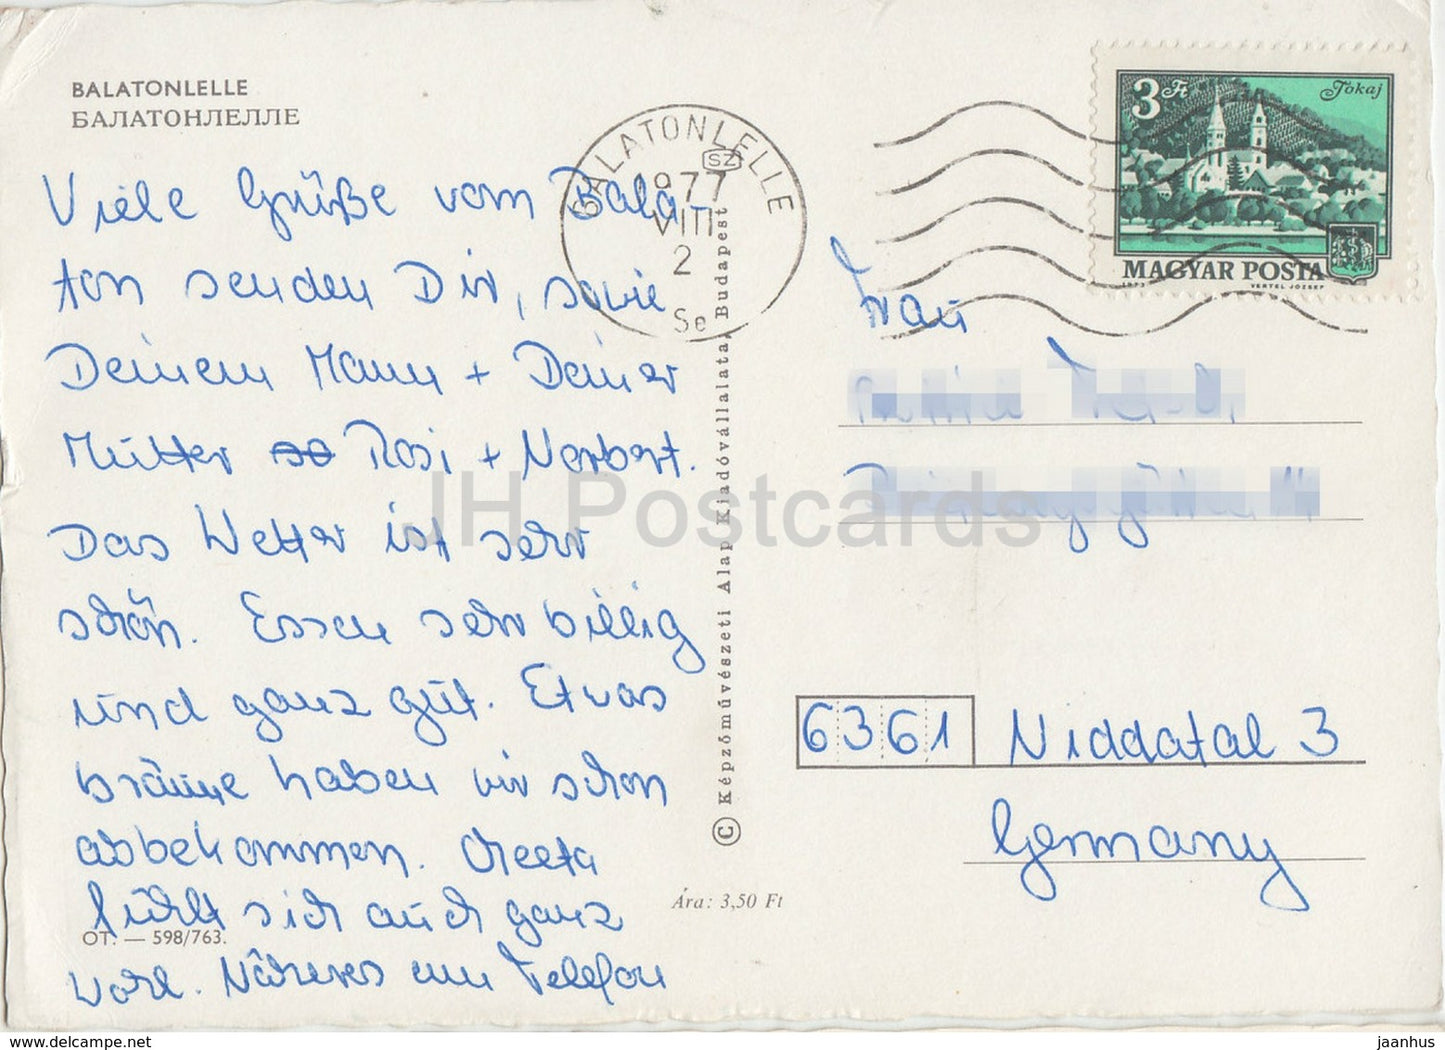 BALATONLELLE
БАЛАТОНЛЕЛЛЕ
Viele Grüße vom Bala-
ton senden Dir, sowie
Deinem Mann + Deiner
Mutter Rosi + Norbert.
Das Wetter ist sehr
schön. Essen sehr billig
und ganz gut. Etwas
bräune haben wir schon
abbekommen. Greeta
fühlt sich auch ganz
wohl. Näheres am Telefon
OT. — 598/763.
BALATONLELLE
SZ
1977
VIII
2
Se
© Képzőművészeti Alap Kiadóvállalata, Budapest
Ára: 3,50 Ft
3 Ft
Tokaj
MAGYAR POSTA
1973
VERTEL JÓZSEF
Frau
6361 Niddatal 3
Germany
JH Postcards
jaanhus
www.hippostcard.com